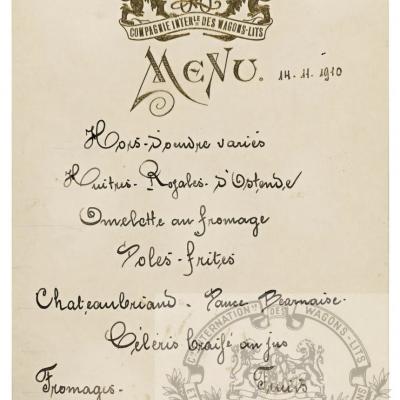 COMPAGNIE INTERLE DES WAGONS-LITS
MENU. 14.11.1910
Hors-d'oeuvre variés
Huitres-Royales-d'Ostende
Omelette au fromage
Soles-frites
Chateaubriand - Sauce Béarnaise.
Céleris braisé au jus
Fromages - Fruits
INTERNATIONALE DES WAGONS-LITS